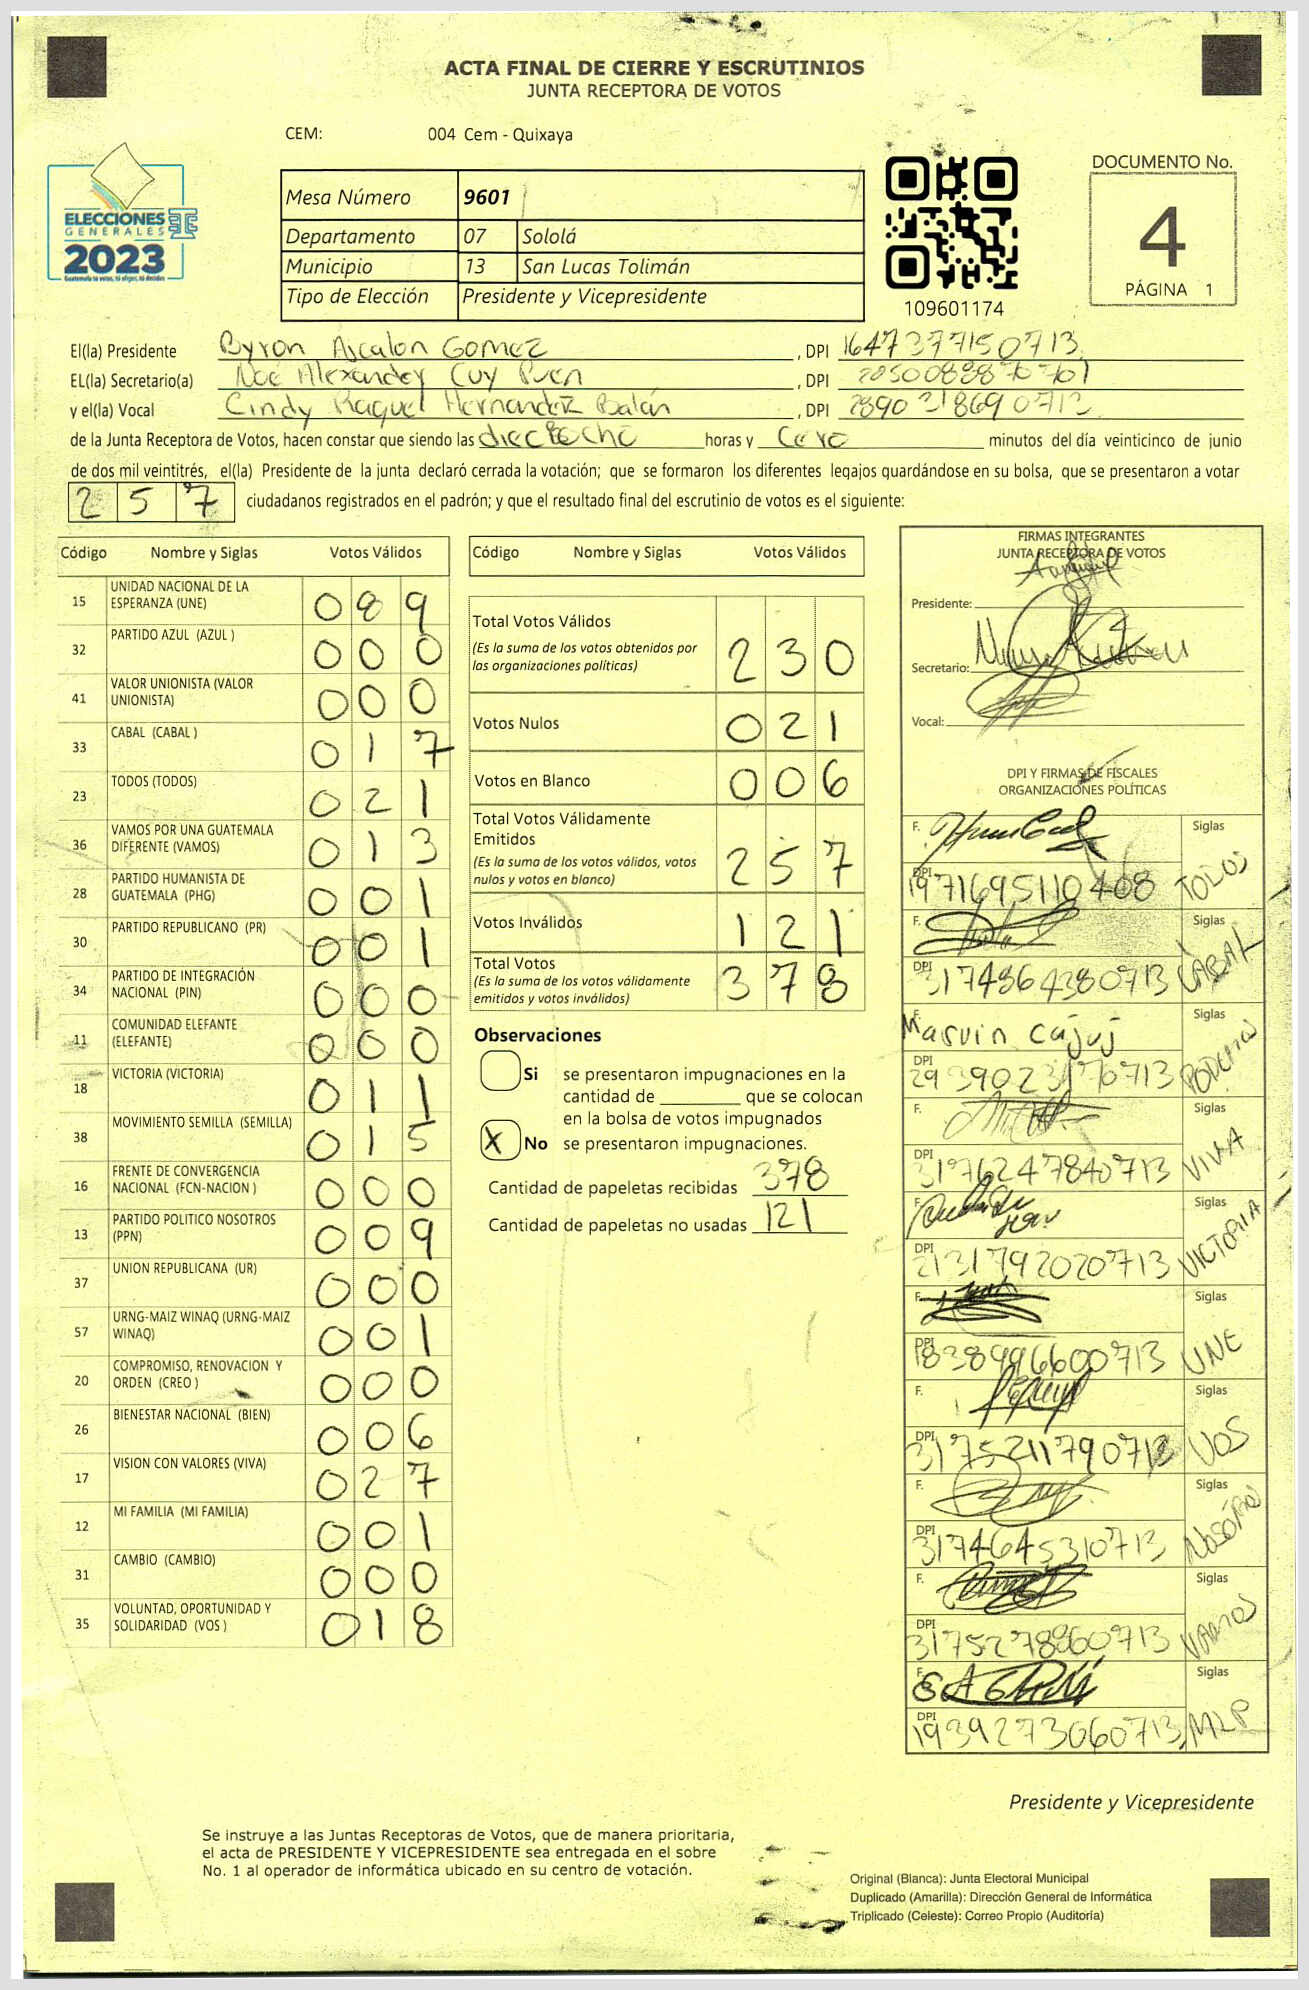 ACTA FINAL DE CIERRE Y ESCRUTINIOS
JUNTA RECEPTORA DE VOTOS
CEM: 004 Cem - Quixaya
DOCUMENTO No.
4
PÁGINA 1
ELECCIONES
GENERALES
2023
Guatemala tu votas, tú eliges, tú decides
Mesa Número 9601
Departamento 07 Sololá
Municipio 13 San Lucas Tolimán
Tipo de Elección Presidente y Vicepresidente
109601174
El(la) Presidente Byron Ajcalon Gomez, DPI 1647377150713
EL(la) Secretario(a) Noé Alexander Cuy, DPI
y el(la) Vocal Cindy Raquel Hernandez Balán, DPI 2890318690713
de la Junta Receptora de Votos, hacen constar que siendo las dieciocho horas y Cero minutos del día veinticinco de junio
de dos mil veintitrés, el(la) Presidente de la junta declaró cerrada la votación; que se formaron los diferentes legajos guardándose en su bolsa, que se presentaron a votar
257 ciudadanos registrados en el padrón; y que el resultado final del escrutinio de votos es el siguiente:
Código Nombre y Siglas Votos Válidos
15 UNIDAD NACIONAL DE LA ESPERANZA (UNE) 089
32 PARTIDO AZUL (AZUL ) 000
41 VALOR UNIONISTA (VALOR UNIONISTA) 000
33 CABAL (CABAL ) 017
23 TODOS (TODOS) 021
36 VAMOS POR UNA GUATEMALA DIFERENTE (VAMOS) 013
28 PARTIDO HUMANISTA DE GUATEMALA (PHG) 001
30 PARTIDO REPUBLICANO (PR) 001
34 PARTIDO DE INTEGRACIÓN NACIONAL (PIN) 000
11 COMUNIDAD ELEFANTE (ELEFANTE) 000
18 VICTORIA (VICTORIA) 011
38 MOVIMIENTO SEMILLA (SEMILLA) 015
16 FRENTE DE CONVERGENCIA NACIONAL (FCN-NACION ) 000
13 PARTIDO POLITICO NOSOTROS (PPN) 009
37 UNION REPUBLICANA (UR) 000
57 URNG-MAIZ WINAQ (URNG-MAIZ WINAQ) 001
20 COMPROMISO, RENOVACION Y ORDEN (CREO ) 000
26 BIENESTAR NACIONAL (BIEN) 006
17 VISION CON VALORES (VIVA) 027
12 MI FAMILIA (MI FAMILIA) 001
31 CAMBIO (CAMBIO) 000
35 VOLUNTAD, OPORTUNIDAD Y SOLIDARIDAD (VOS ) 018
Código Nombre y Siglas Votos Válidos
Total Votos Válidos 230
(Es la suma de los votos obtenidos por
las organizaciones políticas)
Votos Nulos 021
Votos en Blanco 006
Total Votos Válidamente
Emitidos 257
(Es la suma de los votos válidos, votos
nulos y votos en blanco)
Votos Inválidos 121
Total Votos 378
(Es la suma de los votos válidamente
emitidos y votos inválidos)
Observaciones
Si se presentaron impugnaciones en la
cantidad de ________ que se colocan
en la bolsa de votos impugnados
X No se presentaron impugnaciones.
Cantidad de papeletas recibidas 378
Cantidad de papeletas no usadas 121
FIRMAS INTEGRANTES
JUNTA RECEPTORA DE VOTOS
Presidente:
Secretario:
Vocal:
DPI Y FIRMAS DE FISCALES
ORGANIZACIONES POLÍTICAS
F. Siglas
DPI 1971695110408 TODOS
F. Siglas
DPI 3174864380713 CABAL
F. Marvin Cajuj Siglas
DPI 2939023170713 PODEMOS
F. Siglas
DPI 3176247840713 VIVA
F. Siglas
DPI 2131792020713 VICTORIA
F. Siglas
DPI 1838996600713 UNE
F. Siglas
DPI 3175211790713 VOS
F. Siglas
DPI 3174645310713 Nosotros
F. Siglas
DPI 3175278860713 VAMOS
F. Siglas
DPI 1939273060713 MLP
Presidente y Vicepresidente
Se instruye a las Juntas Receptoras de Votos, que de manera prioritaria,
el acta de PRESIDENTE Y VICEPRESIDENTE sea entregada en el sobre
No. 1 al operador de informática ubicado en su centro de votación.
Original (Blanca): Junta Electoral Municipal
Duplicado (Amarilla): Dirección General de Informática
Triplicado (Celeste): Correo Propio (Auditoría)